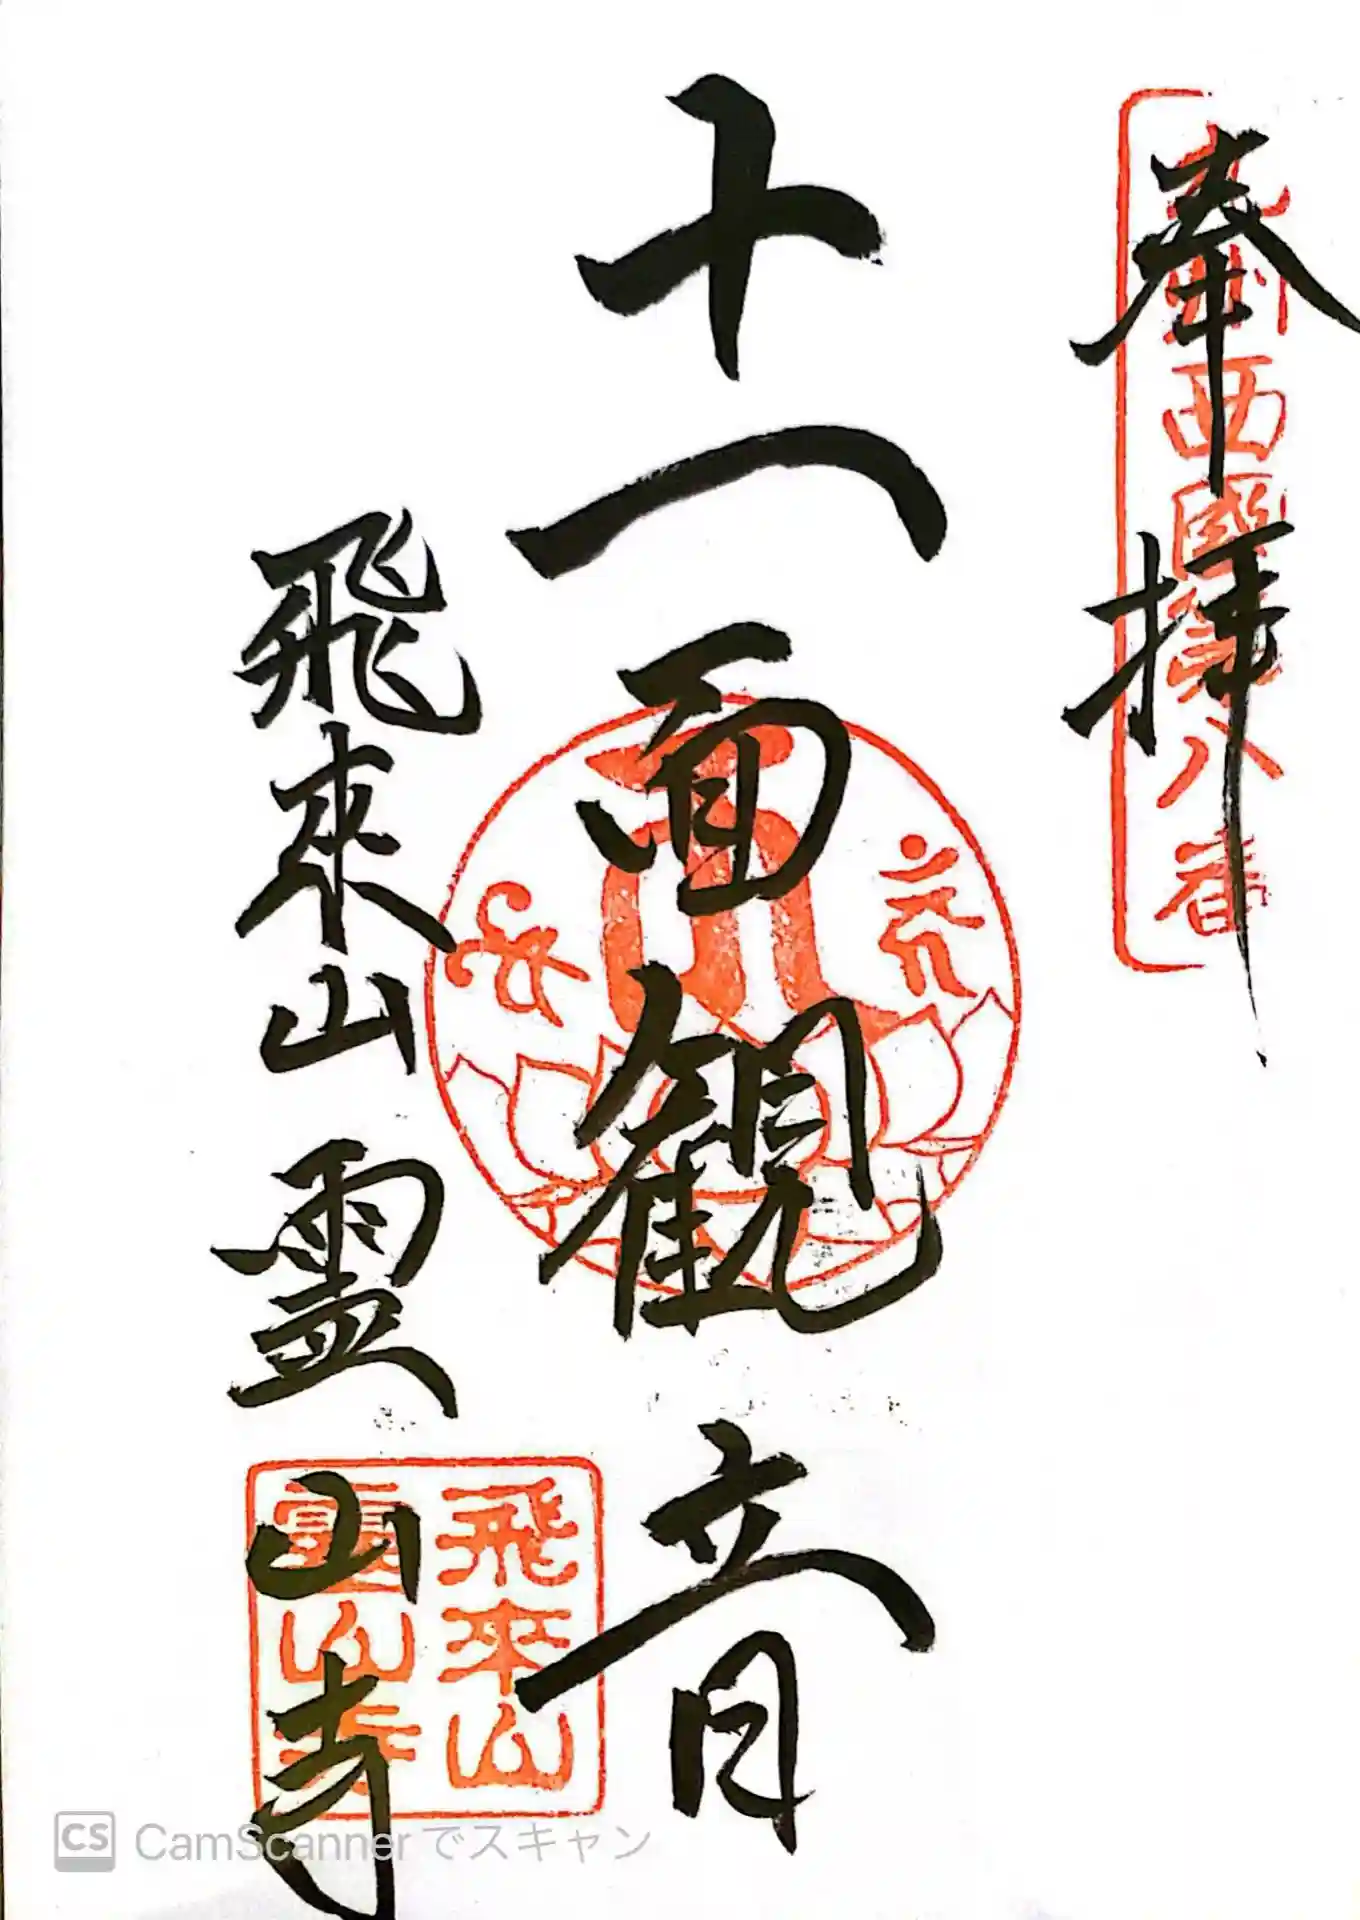 奉拝
九州西國第八番
十一面観音
飛來山 霊山寺
飛來山
霊山寺
CS CamScannerでスキャン